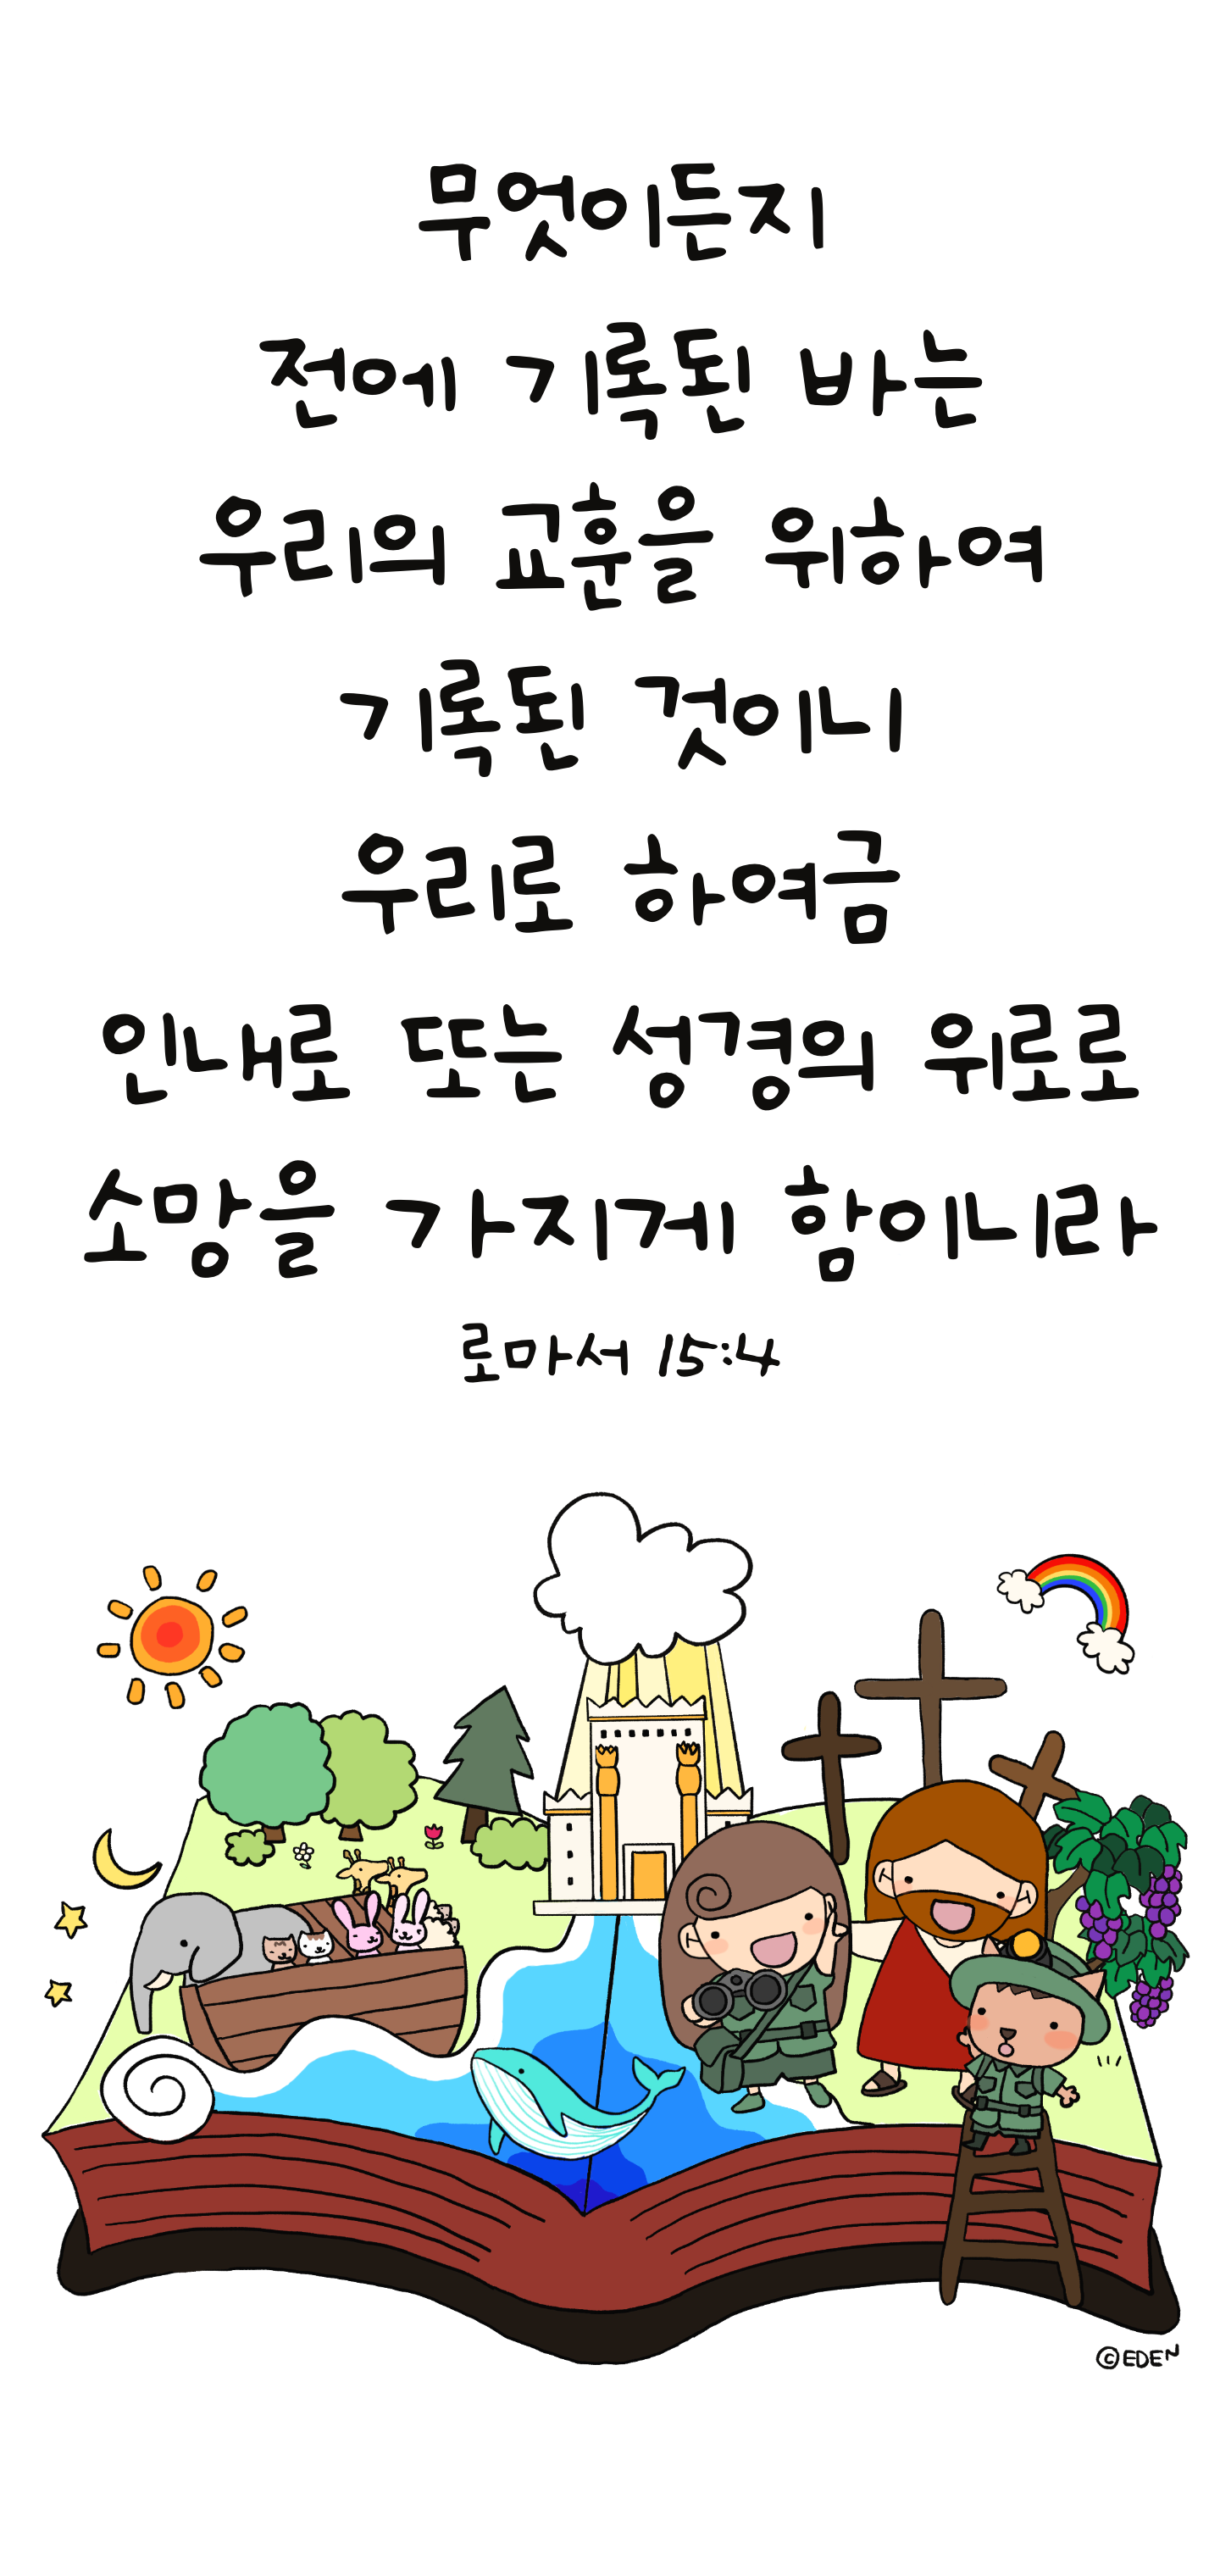 무엇이든지
전에 기록된 바는
우리의 교훈을 위하여
기록된 것이니
우리로 하여금
인내로 또는 성경의 위로로
소망을 가지게 함이니라
로마서 15:4
©EDEN